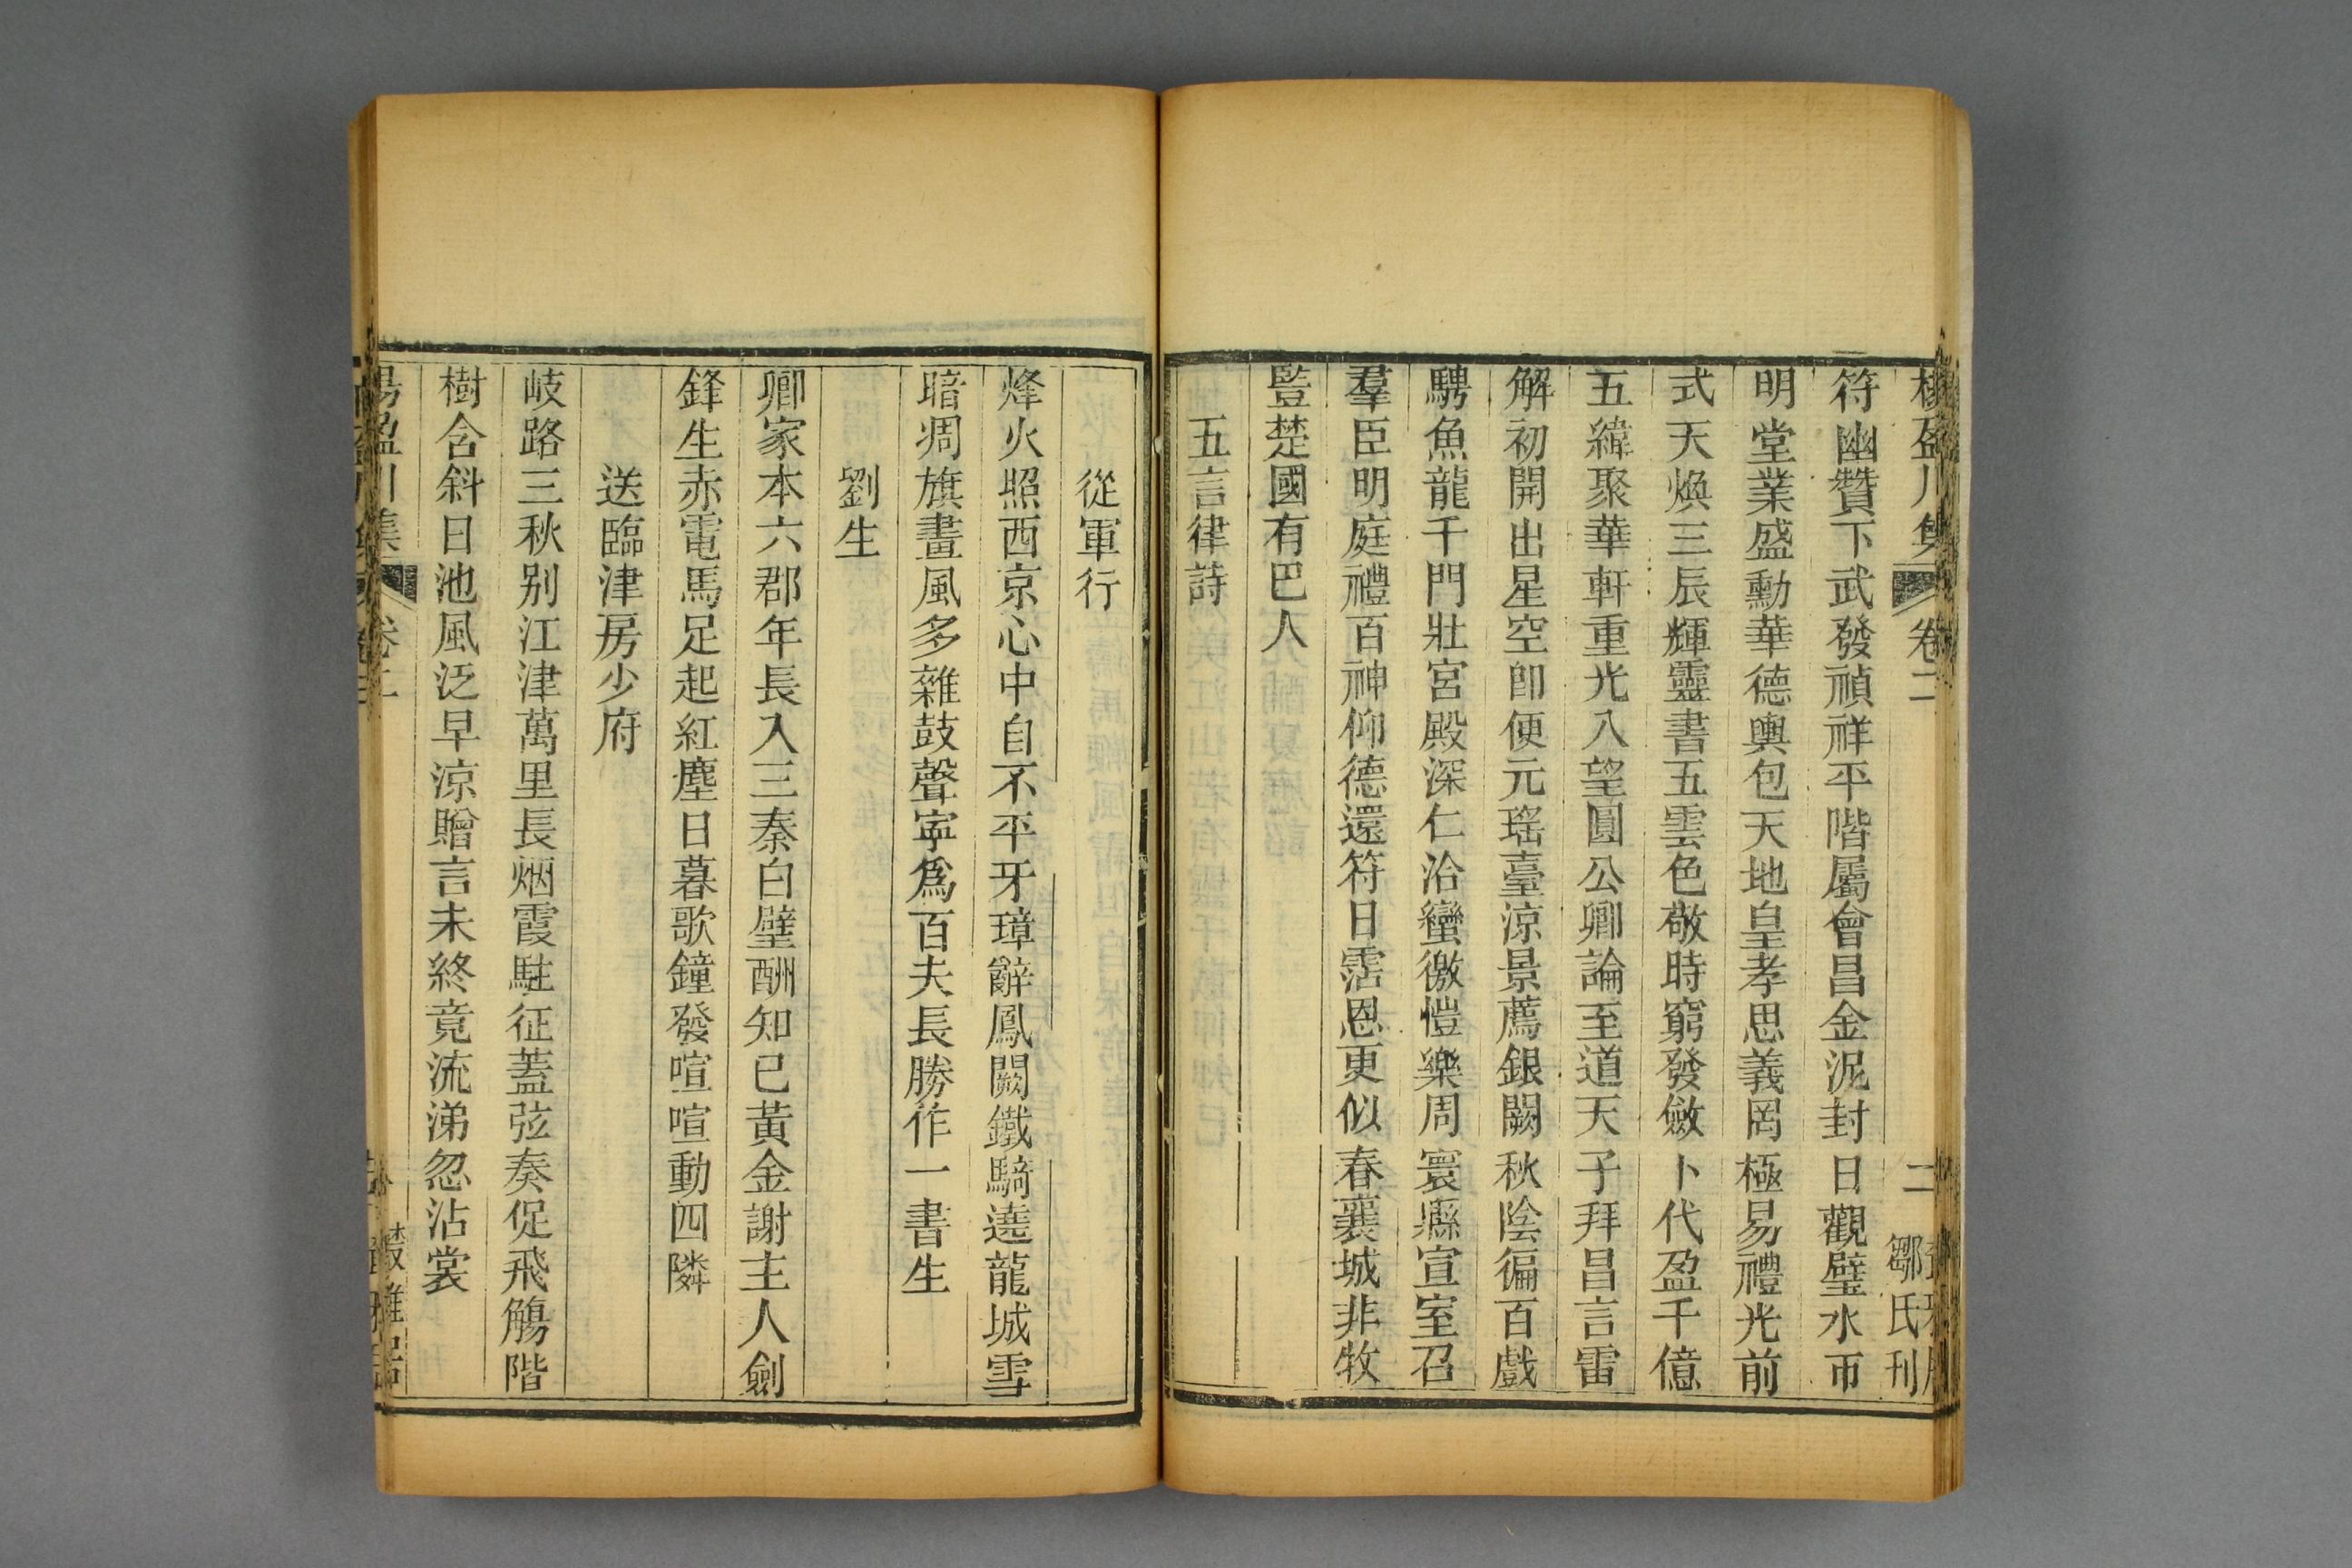 楊盈川集 卷二 二 鄒氏刊
符幽贊下武發禎祥平階屬會昌金泥封日觀璧水帀
明堂業盛勳華德輿包天地皇孝思義罔極易禮光前
式天煥三辰輝靈書五雲色敬時窮發斂卜代盈千億
五緯聚華軒重光入望圓公卿論至道天子拜昌言雷
解初開出星空卽便元瑤臺涼景薦銀闕秋陰徧百戲
騁魚龍千門壯宮殿深仁洽蠻徼愷樂周寰縣宣室召
羣臣明庭禮百神仰德還符日霑恩更似春襄城非牧
豎楚國有巴人
五言律詩
從軍行
烽火照西京心中自不平牙璋辭鳳闕鐵騎遶龍城雪
暗凋旗畫風多雜鼓聲寧爲百夫長勝作一書生
劉生
卿家本六郡年長入三秦白璧酬知己黃金謝主人劍
鋒生赤電馬足起紅塵日暮歌鐘發喧喧動四隣
送臨津房少府
岐路三秋別江津萬里長烟霞駐征蓋弦奏促飛觴階
樹含斜日池風泛早涼贈言未終竟流涕忽沾裳
楊盈川集 卷二 叢雅居